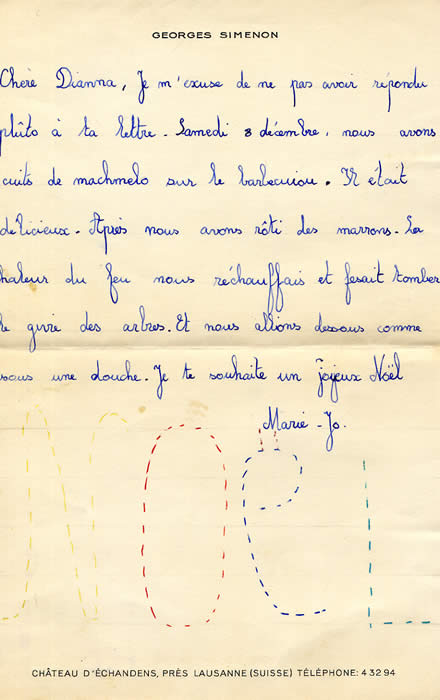 GEORGES SIMENON
Chère Dianna, Je m'excuse de ne pas avoir répondu
plûto à ta lettre. Samedi 8 décembre, nous avons
cuits de machmelo sur le barbecuiou. Il était
délicieux. Après nous avons rôti des marrons. La
haleur du feu nous réchauffais et fesait tomber
le givre des arbres. Et nous allions dessous comme
sous une douche. Je te souhaite un joyeux Noël
Marie-Jo.
NOËL
CHÂTEAU D'ÉCHANDENS, PRÈS LAUSANNE (SUISSE) TÉLÉPHONE: 4 32 94